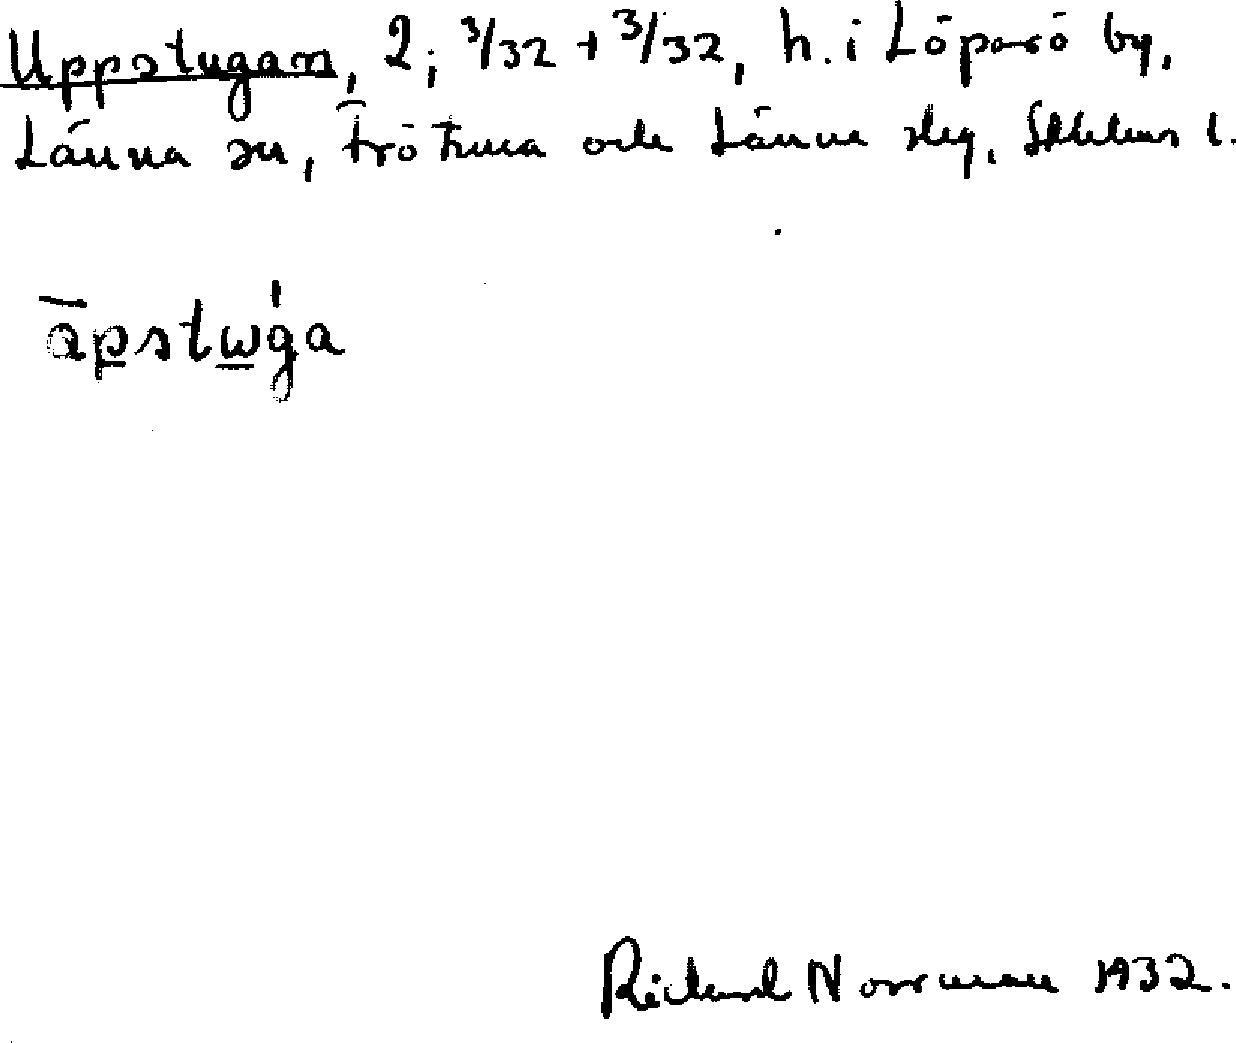 Uppstugan, 2; 3/32 + 3/32, h. i Löparö by,
Länna sn, Frötuna och Länna slg, Sthlms l.
apstwga
Richard Norrman 1932.